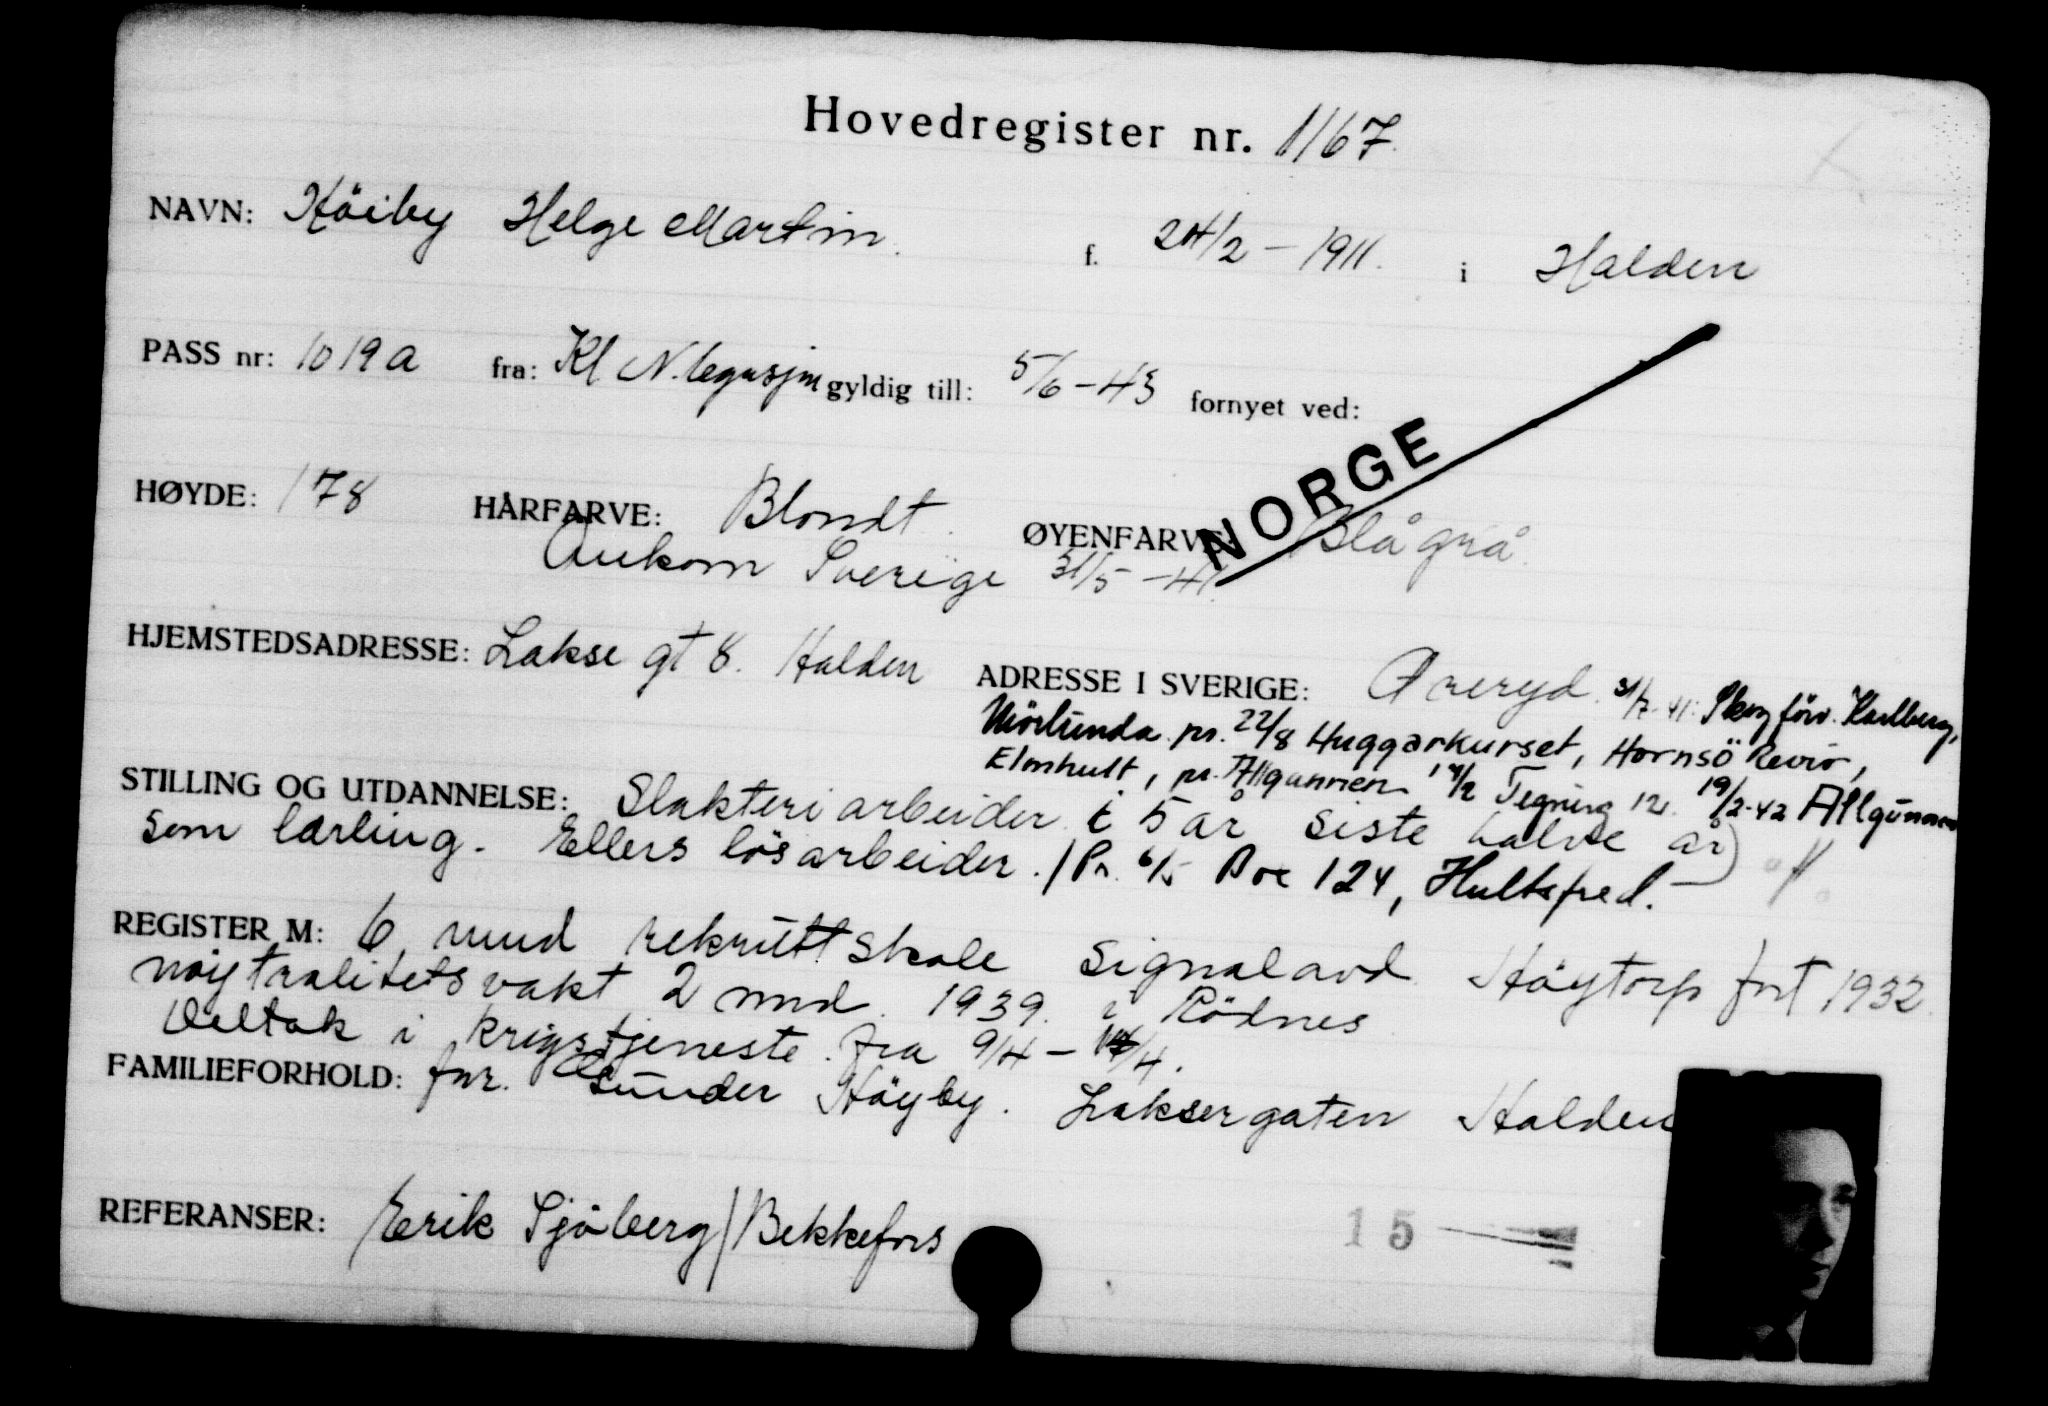 Hovedregister nr. 1167
NAVN: Höiby Helge Martin. f. 24/2 - 1911. i Halden
PASS nr: 1019a fra: Kl N. legasjon gyldig till: 5/6 - 43 fornyet ved:
NORGE
HØYDE: 178 HÅRFARVE: Blondt. ØYENFARVE: Blågrå.
Ankom Sverige 31/5 - 41.
HJEMSTEDSADRESSE: Lakse gt 8. Halden ADRESSE I SVERIGE: Øreryd. 31/7-41: Skogförv. Karlberg,
Mörlunda. pr. 22/8 Huggarkurset, Hornsö Revir,
Elmhult, pr. Allgunnen 19/2-42 Allgunnen
STILLING OG UTDANNELSE: Slakteriarbeider i 5 år siste halve år)
som lærling. Ellers lösarbeider. / Pr. 6/5 Box 124, Hultsfred.
REGISTER M: 6 mnd rekruttskole signalavd. Höytorp fort 1932.
nöytralitetsvakt 2 mnd. 1939. i Rödnes.
Deltok i krigstjeneste. fra 9/4 - 14/4.
FAMILIEFORHOLD: far. Gunder Höyby. Laksergaten Halden
REFERANSER: Erik Sjöberg / Bekkefors
15